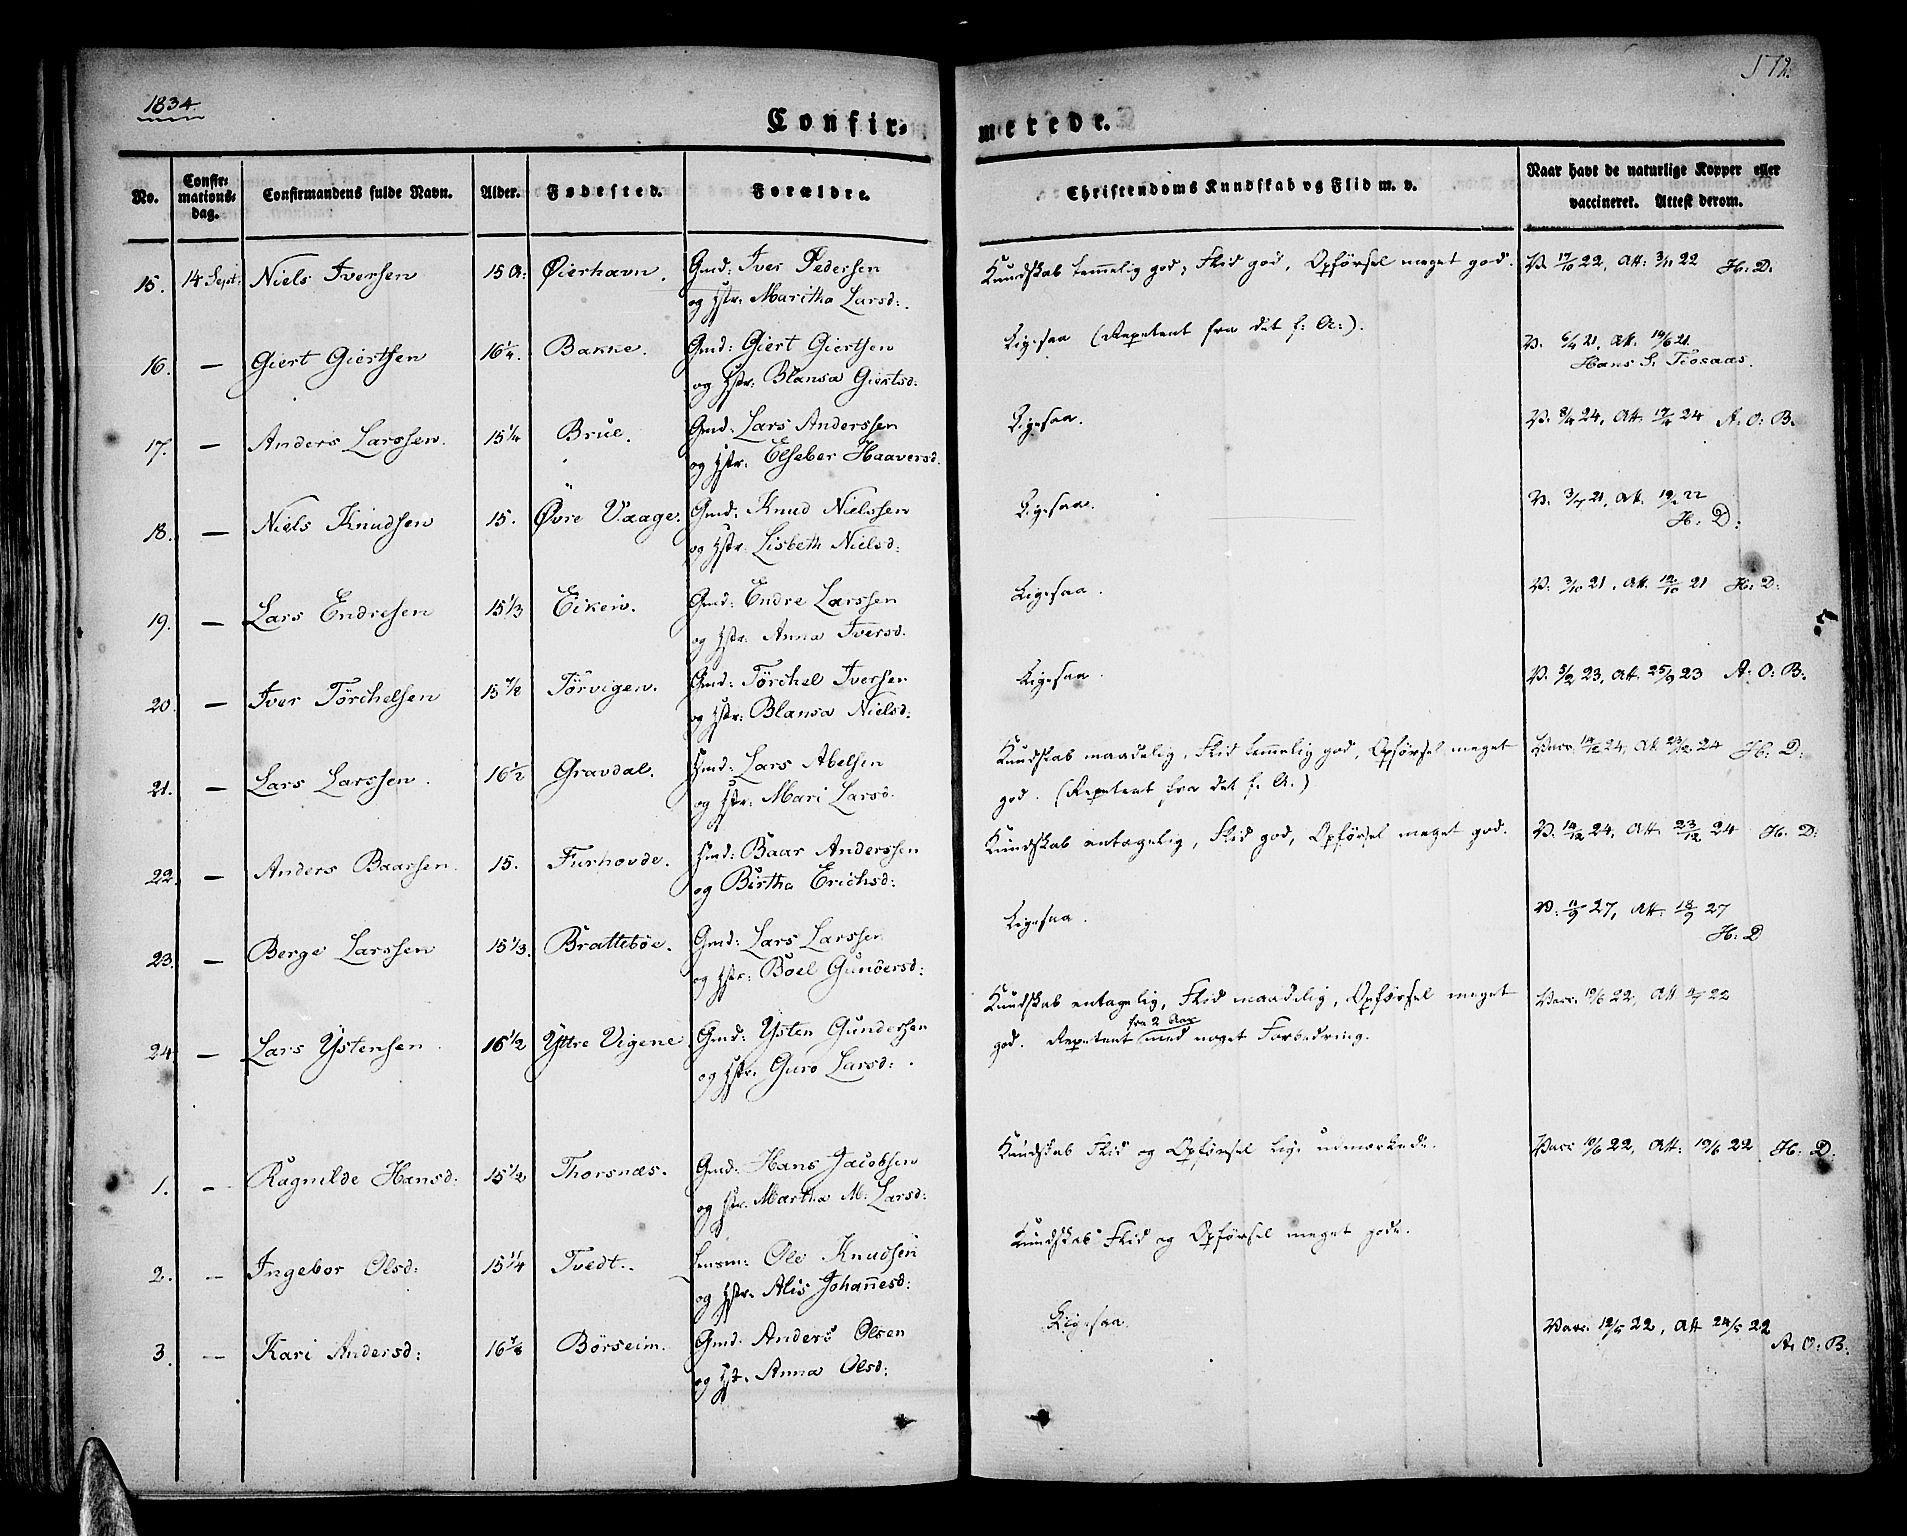 1834.
572.
Confir-
merede.
No.
Confir-
mations-
dag.
Confirmandens fulde Navn.
Alder.
Fødested.
Forældre.
Christendoms Kundskab og Flid m. v.
Naar havt de naturlige Kopper eller
vaccineret. Attest derom.
15. 14 Sept: Niels Iversen 15 A: Øierhavn. Gmd: Iver Pedersen
og Hstr: Maritha Larsd:.
Kundskab temmelig god, Flid god, Opførsel meget god. V. 17/10 22, Att: 3/11 22 H: D:
16. — Giert Giertsen 16 1/4. Bakke. Gmd: Giert Giertsen
og Hstr: Blansa Giertsd:
Ligesaa (Repetent fra det f: A:). V. 6/4 21, Att. 14/6 21.
Hans S. Tiosaas.
17. — Anders Larssen. 15 1/4 Brue. Gmd: Lars Anderssen
og Hstr: Elseber Haaversd.
Ligesaa. V. 8/4 24, Att. 17/4 24 A: O: B.
18. — Niels Knudsen 15. Øvre Vaage. Gmd: Knud Nielssen
og Hstr: Lisbeth Nielsd:
Ligesaa. V: 3/7 21, Att. 22
H: D:
19. — Lars Endresen 15 1/3 Eikeiv. Gmd: Endre Larssen
og Hstr: Anna Iversd.
Ligesaa. V: 3/10 21, Att. 12/10 21 H: D:
20. — Iver Törchelsen 15 1/2 Törvigen. Gmd: Törchel Iversen
og Hstr: Blansa Nielsd:
Ligesaa. V. 5/2 23, Att. 25/9 23 A: O: B.
21. — Lars Larssen. 16 1/2 Gravdal. Hmd: Lars Abelsen
og Hstr: Mari Larsd.
Kundskab maadelig, Flid temmelig god, Opførsel meget
god. (Repetent fra det f: A:)
Vacc. 14/12 24, Att 23/12 24 H: D:
22. — Anders Baarsen. 15. Furhovde. Hmd: Baar Anderssen
og Birtha Erichsd:
Kundskab antagelig, Flid god, Opførsel meget god. V. 14/12 24, Att. 23/12 24 H: D:
23. — Berge Larssen 15 1/3. Brattebøe. Gmd: Lars Larssen
og Hstr: Boel Gundersd:
Ligesaa. V: 11/9 27, Att: 18/9 27
H: D
24. — Lars Ystensen. 16 1/2 Yttre Vigene Gmd: Ysten Gundersen
og Hstr: Guro Larsd:.
Kundskab antagelig, Flid maadelig, Opførsel meget
fra 2 Aar
god. Repetent med noget Forbedring.
Vacc. 19/6 22, Att 22
1. — Ragnilde Hansd: 15 1/2 Thorsnæs. Gmd: Hans Jacobsen
og Hstr. Martha M: Larsd:
Kundskab Flid og Opførsel lige udmærkede. Vacc 10/6 22, Att: 19/6 22 H: D:
2. — Ingebor Olsd: 15 1/4 Tvedt. Ole Knudsen
og Hstr: Alis Johannesd:
Kundskab Flid og Opførsel meget gode.
3. — Kari Andersd: 16 Börseim. Gmd: Anders Olsen
og Hst. Anna Olsd:
Ligesaa. Vacc. 12/5 22, Att 24/5 22
A: O: B.